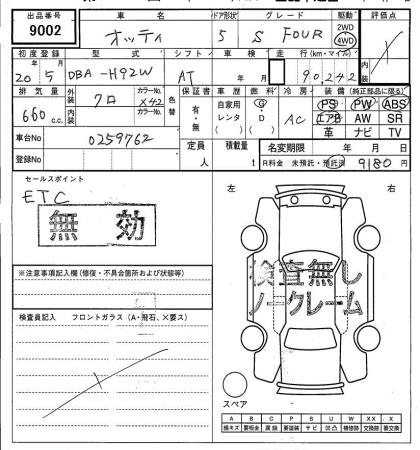 出品番号 車名 ドア形状 グレード 駆動 評価点
9002 オッティ 5 S FOUR 2WD 4WD
初度登録 型式 シフト 車検 走行(km・マイル) 装備(純正部品に限る)
20年5月 DBA-H92W AT 年 月 90,242
排気量 外装 カラーNo. 色替 カラーNo. 保証書 車歴 燃料 冷房
660c.c. クロ X42 有・無 自家用 レンタ ( ) G・D ( ) AC
PS PW ABS
エアB AW SR
革 ナビ TV
車台No 0259762
登録No
定員 人 積載量 t
名変期限 年 月 日
R料金 未預託・預託済 9180円
セールスポイント
ETC
無効
※注意事項記入欄(修復・不具合箇所および状態等)
検査員記入 フロントガラス(A・飛石、X要ス)
左 右
検査無し
ノークレーム
スペア
A B C P S U W XX X
線キズ 要板金 腐蝕 要塗装 サビ 凹凸 補修跡 交換跡 要交換